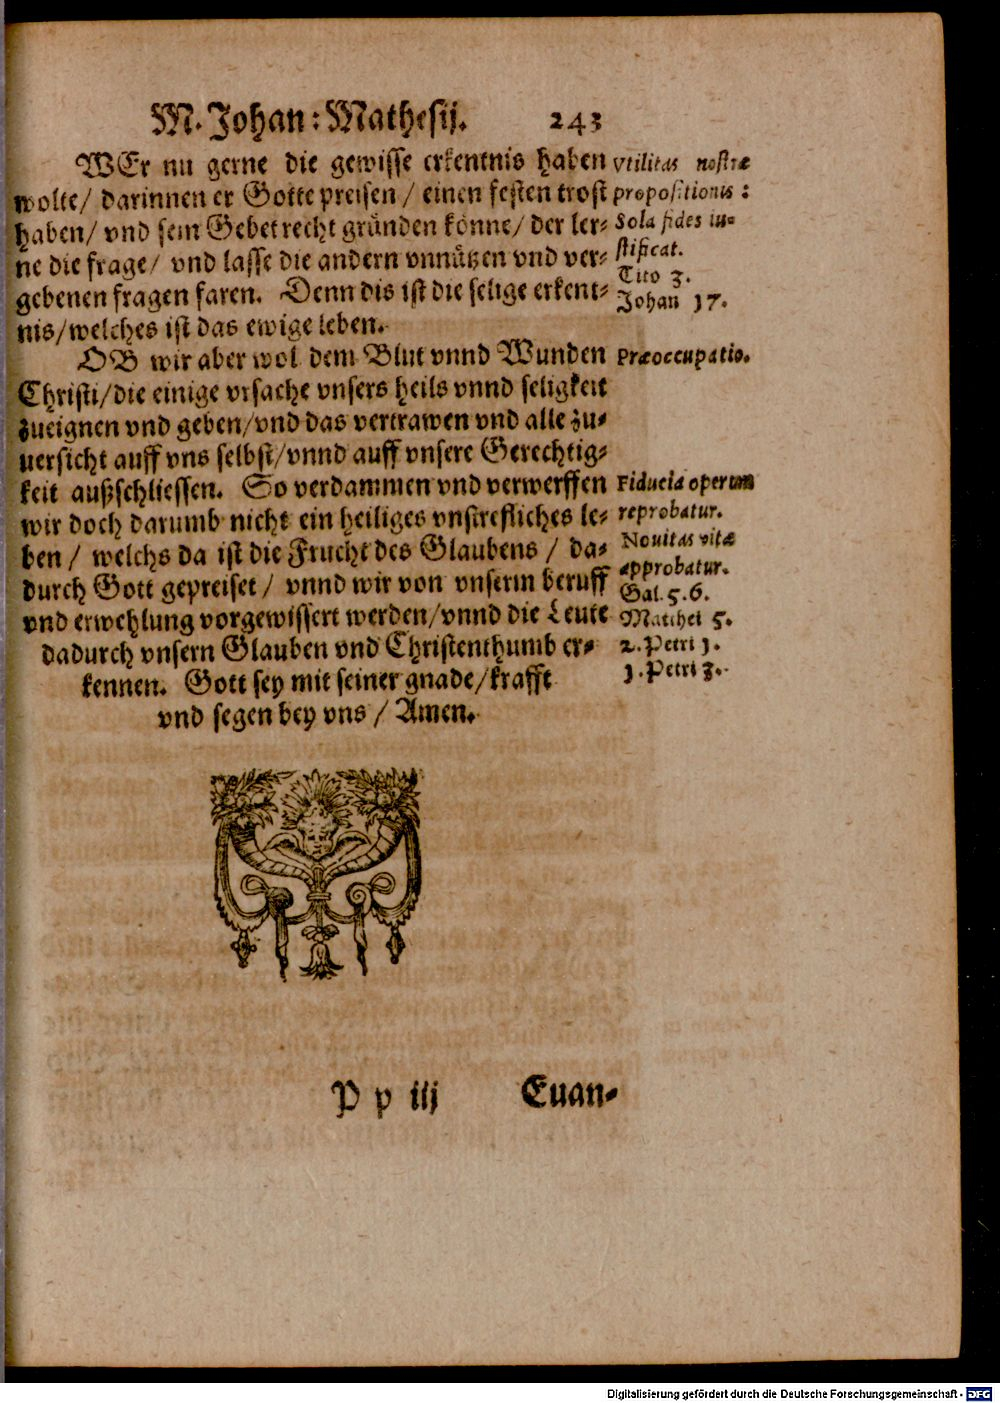 M. Johan: Mathesij. 243
WEr nu gerne die gewisse erkentnis haben
wolte/ darinnen er Gotte preisen/ einen festen trost
haben/ vnd sein Gebet recht gründen könne/ der ler-
ne die frage/ vnd lasse die andern vnnützen vnd ver-
gebenen fragen faren. Denn dis ist die selige erkent-
nis/welches ist das ewige leben.
OB wir aber wol dem Blut vnnd Wunden
Christi/die einige vrsache vnsers heils vnnd seligkeit
zueignen vnd geben/vnd das vertrawen vnd alle zu-
uersicht auff vns selbst/vnnd auff vnsere Gerechtig-
keit außschliessen. So verdammen vnd verwerffen
wir doch darumb nicht ein heiliges vnstrefliches le-
ben/ welchs da ist die Frucht des Glaubens/ da-
durch Gott gepreiset/ vnnd wir von vnserm beruff
vnd erwehlung vorgewissert werden/vnnd die Leute
dadurch vnsern Glauben vnd Christenthumb er-
kennen. Gott sey mit seiner gnade/krafft
vnd segen bey vns/ Amen.
Vtilitas nostræ
propositionis:
Sola fides iu-
stificat.
Tito 3.
Johan 17.
Præoccupatio.
Fiducia operum
reprobatur.
Nouitas vitæ
approbatur.
Gal. 5. 6.
Matthei 5.
2. Petri 1.
1. Petri 3.
P p iij Euan-
Digitalisierung gefördert durch die Deutsche Forschungsgemeinschaft - DFG